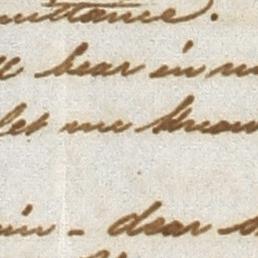 mittance.
bear in
let me know
in - dear